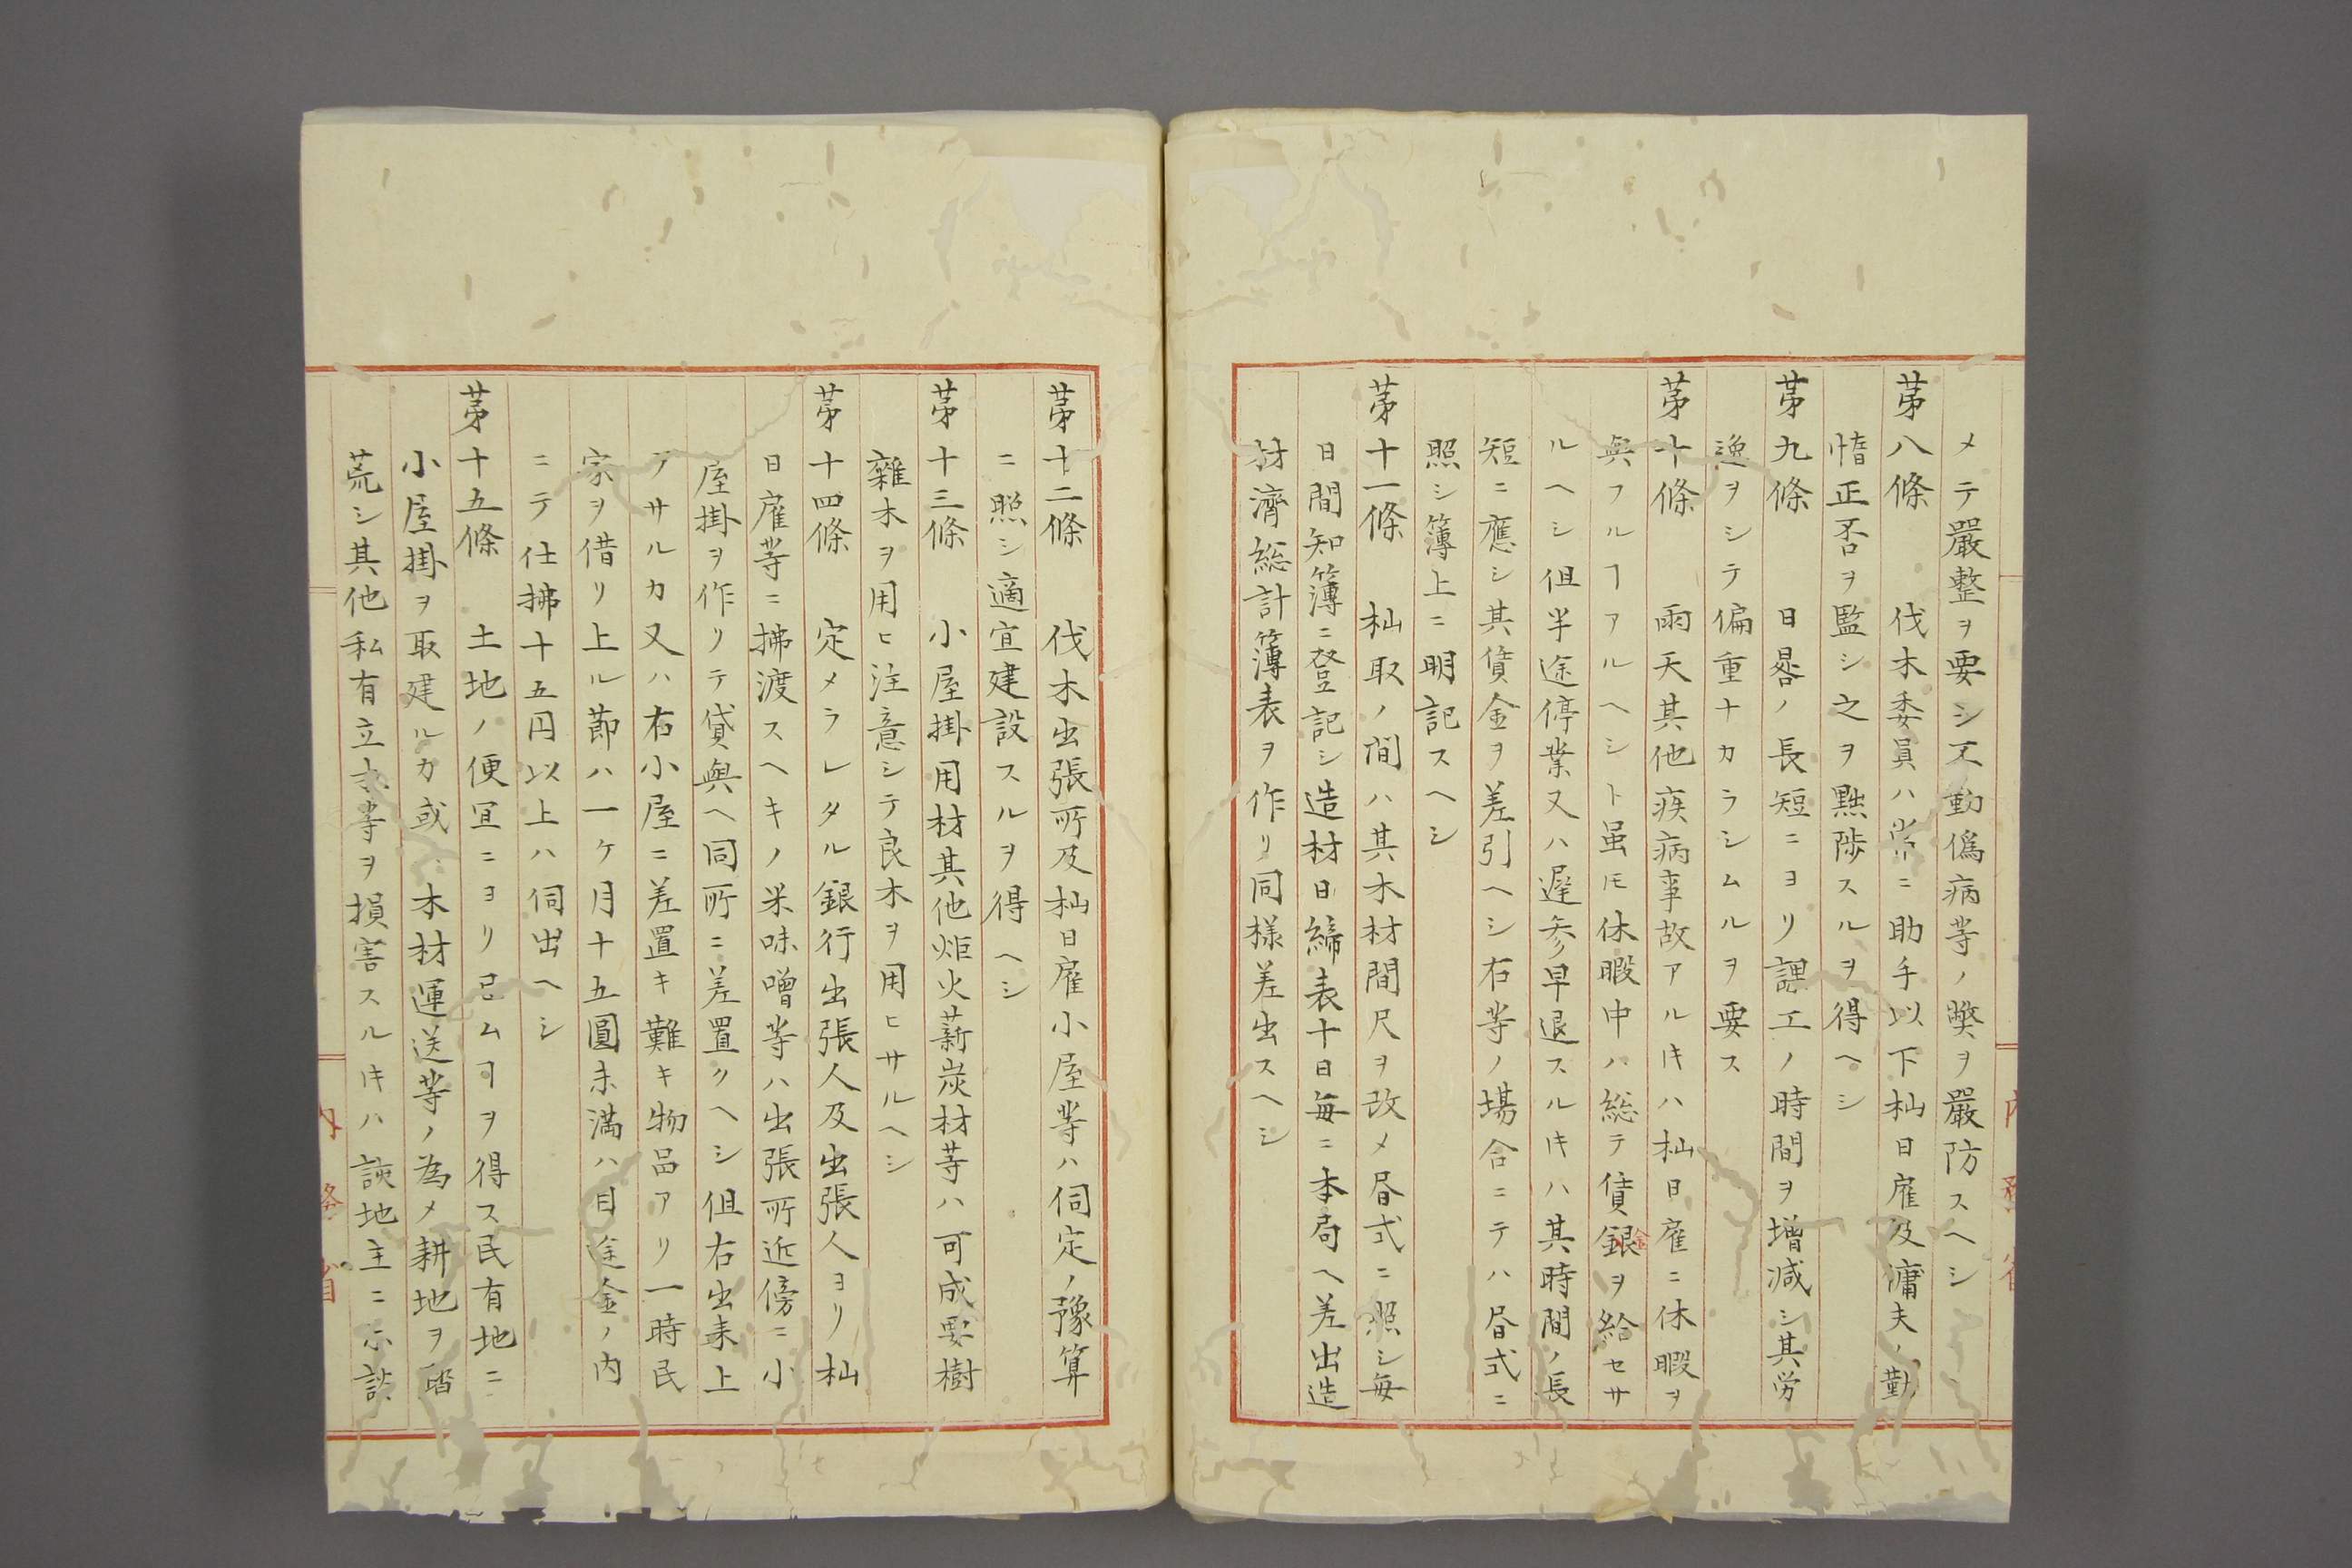 メテ嚴整ヲ要シ不勤僞病等ノ獘ヲ嚴防スヘシ
第八條　伐木委員ハ常ニ助手以下杣日雇及庸夫ノ勤
惰正否ヲ監シ之ヲ黜陟スルヲ得ヘシ
第九條　日晷ノ長短ニヨリ課工ノ時間ヲ増減シ其労
逸ヲシテ偏重ナカラシムルヲ要ス
第十條　雨天其他疾病事故アルキハ杣日雇ニ休暇ヲ
與フルヿアルヘシト虽モ休暇中ハ総テ賃銀ヲ給セサ
金
ルヘシ伹半途停業又ハ遅参早退スルキハ其時間ノ長
短ニ應シ其賃金ヲ差引ヘシ右等ノ場合ニテハ㫪式ニ
照シ簿上ニ明記スヘシ
第十一條　杣取ノ間ハ其木材間尺ヲ改メ㫪式ニ照シ毎
日間知簿ニ登記シ造材日締表十日毎ニ本局ヘ差出造
材濟総計簿表ヲ作リ同様差出スヘシ
内務省
第十二條　伐木出張所及杣日雇小屋等ハ伺定ノ豫算
ニ照シ適宜建設スルヲ得ヘシ
第十三條　小屋掛用材其他炬火薪炭材等ハ可成要樹
雜木ヲ用ヒ注意シテ良木ヲ用ヒサルヘシ
第十四條　定メラレタル銀行出張人及出張人ヨリ杣
日雇等ニ拂渡スヘキノ米味噌等ハ出張所近傍ニ小
屋掛ヲ作リテ貸與ヘ同所ニ差置クヘシ伹右出来上
アサルカ又ハ右小屋ニ差置キ難キ物品アリ一時民
家ヲ借リ上ル節ハ一ケ月十五圓未満ハ目途金ノ内
ニテ仕拂十五円以上ハ伺出ヘシ
第十五條　土地ノ便宜ニヨリ已ムヿヲ得ス民有地ニ
小屋掛ヲ取建ルカ或ハ木材運送等ノ為メ耕地ヲ踏
荒シ其他私有立木等ヲ損害スルキハ該地主ニ示談
内務省